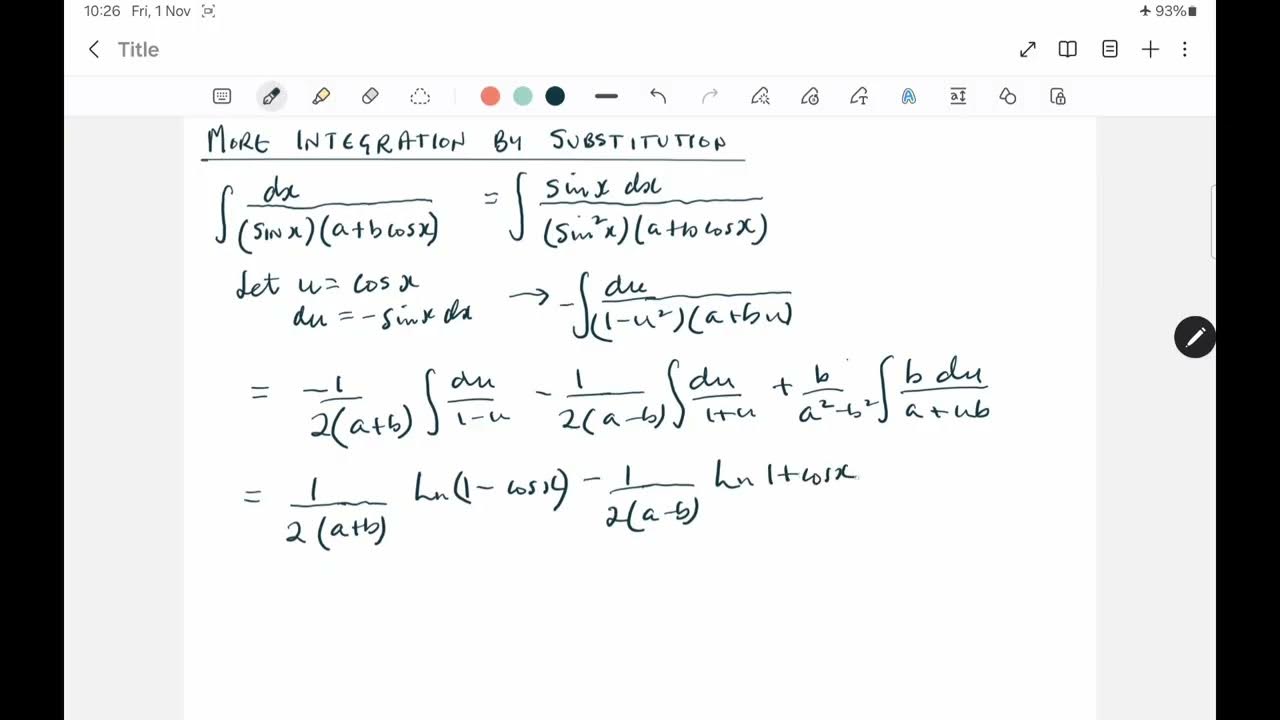 10:26 Fri, 1 Nov 93%
Title
MORE INTEGRATION BY SUBSTITUTION
∫ dx / (sin x)(a+b cosx) = ∫ sin x dx / (sin²x)(a+b cosx)
Let u = cos x
du = -sinx dx → -∫ du / (1-u²)(a+bu)
= -1 / 2(a+b) ∫ du / 1-u - 1 / 2(a-b) ∫ du / 1+u + b / a²-b² ∫ b du / a+ub
= 1 / 2(a+b) ln(1-cosx) - 1 / 2(a-b) ln 1+cosx